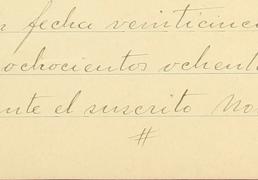 fecha veinticinco
ochocientos ochenta
ante el suscrito No
#